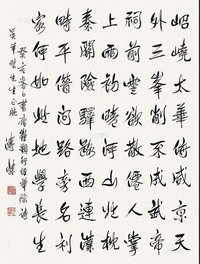 岧嶢太華俯咸京天
外三峯削不成武帝
祠前雲欲散仙人掌
上雨初晴河山北枕
秦關險驛路西連漢
畤平借問路旁名利
客何如此地學長生
癸亥春日書崔顥行經華陰詩
先生正腕